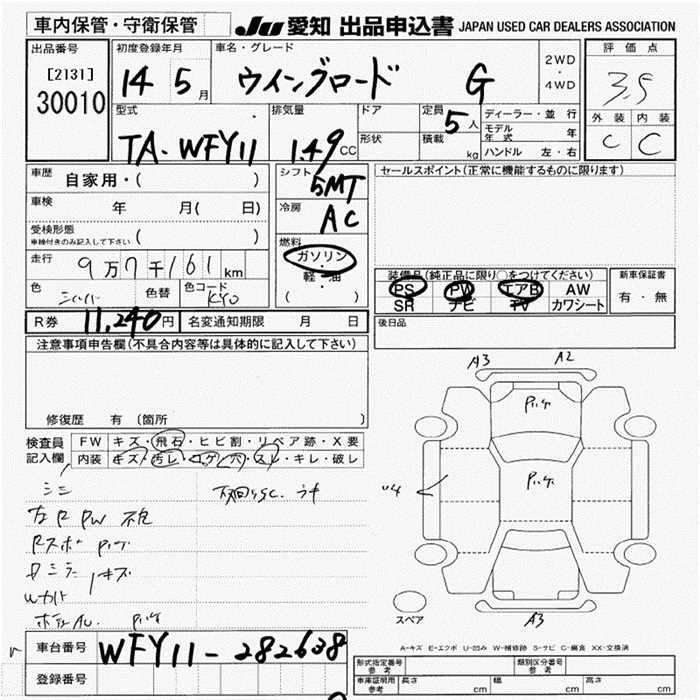 車内保管・守衛保管 JU 愛知 出品申込書 JAPAN USED CAR DEALERS ASSOCIATION
出品番号 初度登録年月 車名・グレード 2WD・4WD 評価点
[2131] 30010 14 5月 ウイングロード G 3.5
型式 排気量 ドア 定員 5人 ディーラー・並行 外装 内装
TA-WFY11 1.49CC 形状 積載 kg モデル年式 年 C C
ハンドル 左・右
車歴 自家用・( ) シフト 5MT セールスポイント(正常に機能するものに限ります)
車検 年 月( 日) 冷房 AC
受検形態 車検付きのみ記入して下さい ( ) 燃料 ガソリン
走行 9万7千161km ・軽・油 ( )
装備品(純正品に限り○をつけてください) 新車保証書
色 シルバー 色替 色コード KY0 PS PW エアB AW 有・無
SR ナビ TV カワシート
R券 11,240円 名変通知期限 月 日 後日品
注意事項申告欄(不具合内容等は具体的に記入して下さい)
修復歴 有 (箇所 )
A3 A2
検査員記入欄 FW キズ・飛石・ヒビ割・リペア跡・X要
内装 キズ・汚レ・コゲ・穴・スレ・キレ・破レ
左R PW 不良
Rスポ
ミラー キズ
A3
スペア
A-キズ E-エクボ U-凹み W-補修跡 S-サビ C-腐食 XX-交換済
車台番号 WFY11-282638
登録番号
形式指定番号 参考 類別区分番号 参考
車庫証明用 参考 長さ cm 幅 cm 高さ cm